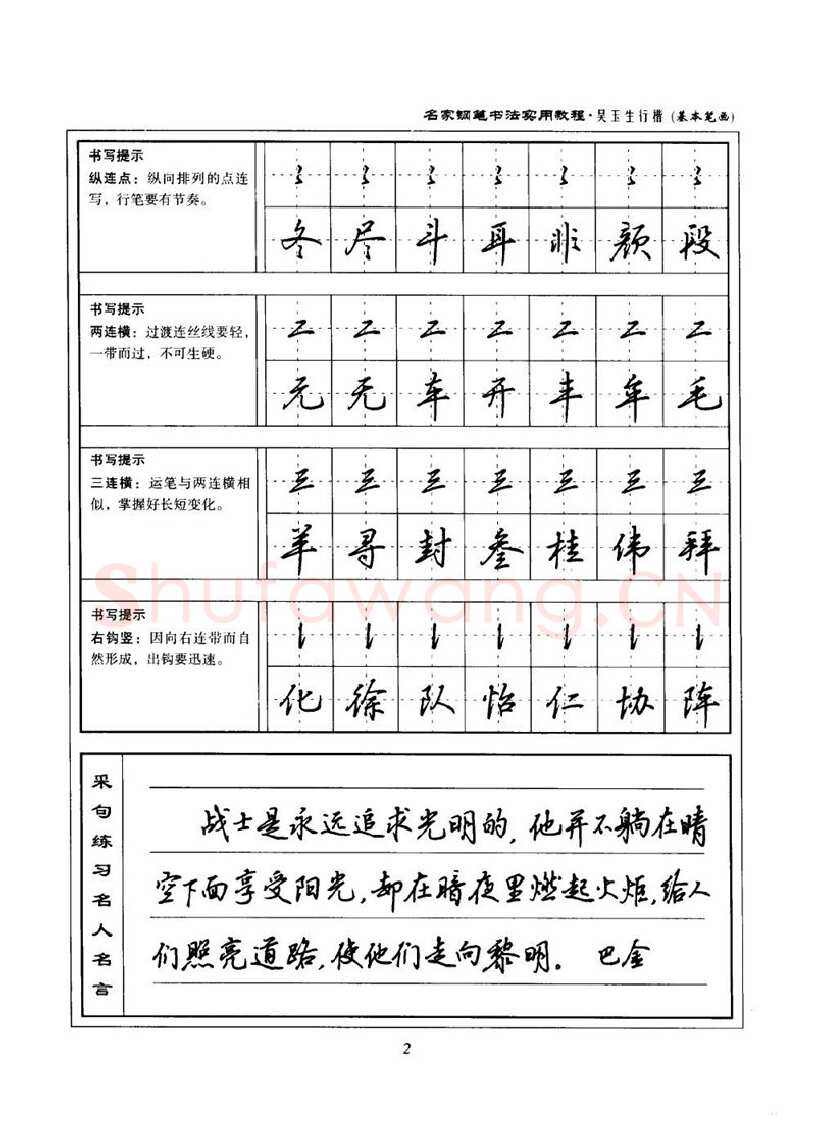 名家钢笔书法实用教程·吴玉生行楷(基本笔画)
书写提示
纵连点：纵向排列的点连
写，行笔要有节奏。
冬尽斗耳非颜段
书写提示
两连横：过渡连丝线要轻，
一带而过，不可生硬。
元无车开丰年毛
书写提示
三连横：运笔与两连横相
似，掌握好长短变化。
羊寻封叁桂伟拜
Shufawang.CN
书写提示
右钩竖：因向右连带而自
然形成，出钩要迅速。
化徐队怡仁协阵
采句练习名人名言
战士是永远追求光明的，他并不躺在晴
空下面享受阳光，却在暗夜里燃起火炬，给人
们照亮道路，使他们走向黎明。 巴金
2